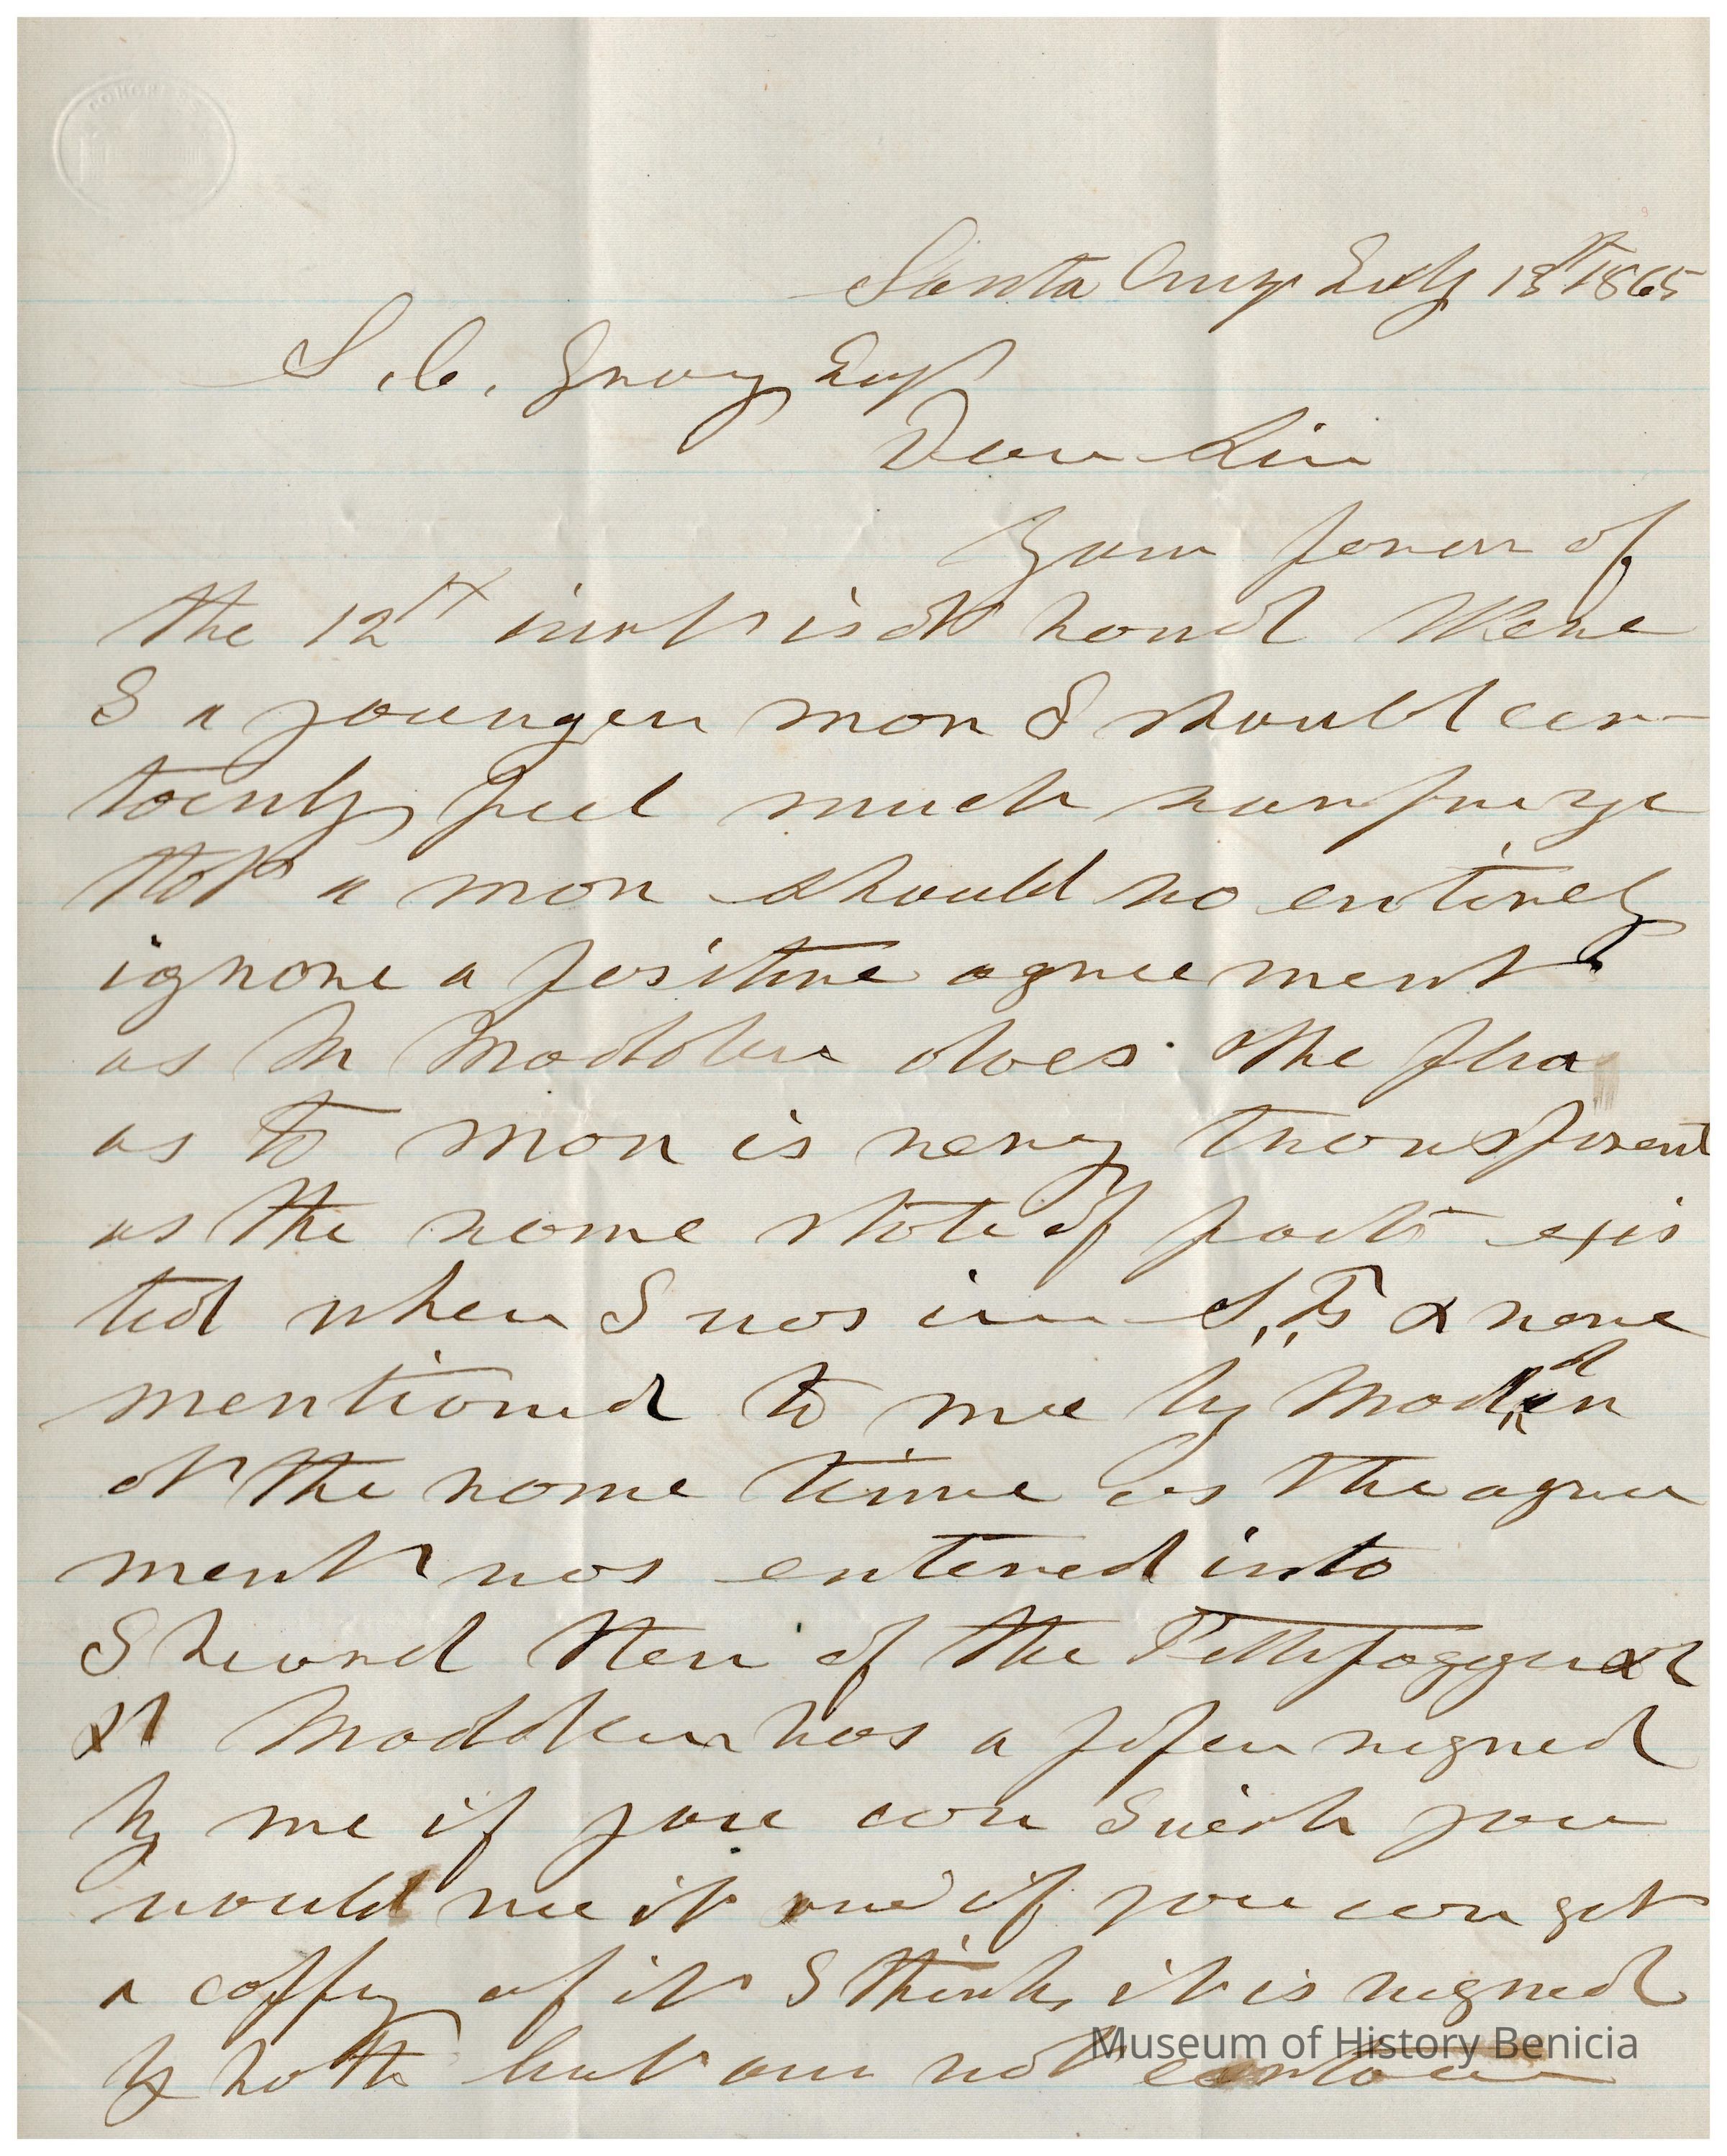 CONGRESS
Santa Cruz July 13th 1865
S. C. Gray Esq
Dear Sir
Your favor of
the 12th inst is at hand Were
I a younger man I should cer-
tainly feel much surprize
that a man should so entirely
ignore a positive agreement
as Mr Madden does. The plea
as to man is very transparent
as the same state of facts exis
ted when I was in S. F. & were
mentioned to me by Madden
at the same time as the agree
ment was entered into
I heard then of the Pettifogger
Madden has a paper signed
by me if you can I wish you
would see it and if you can get
a coppy of it I think it is signed
by both but am not certain
Museum of History Benicia